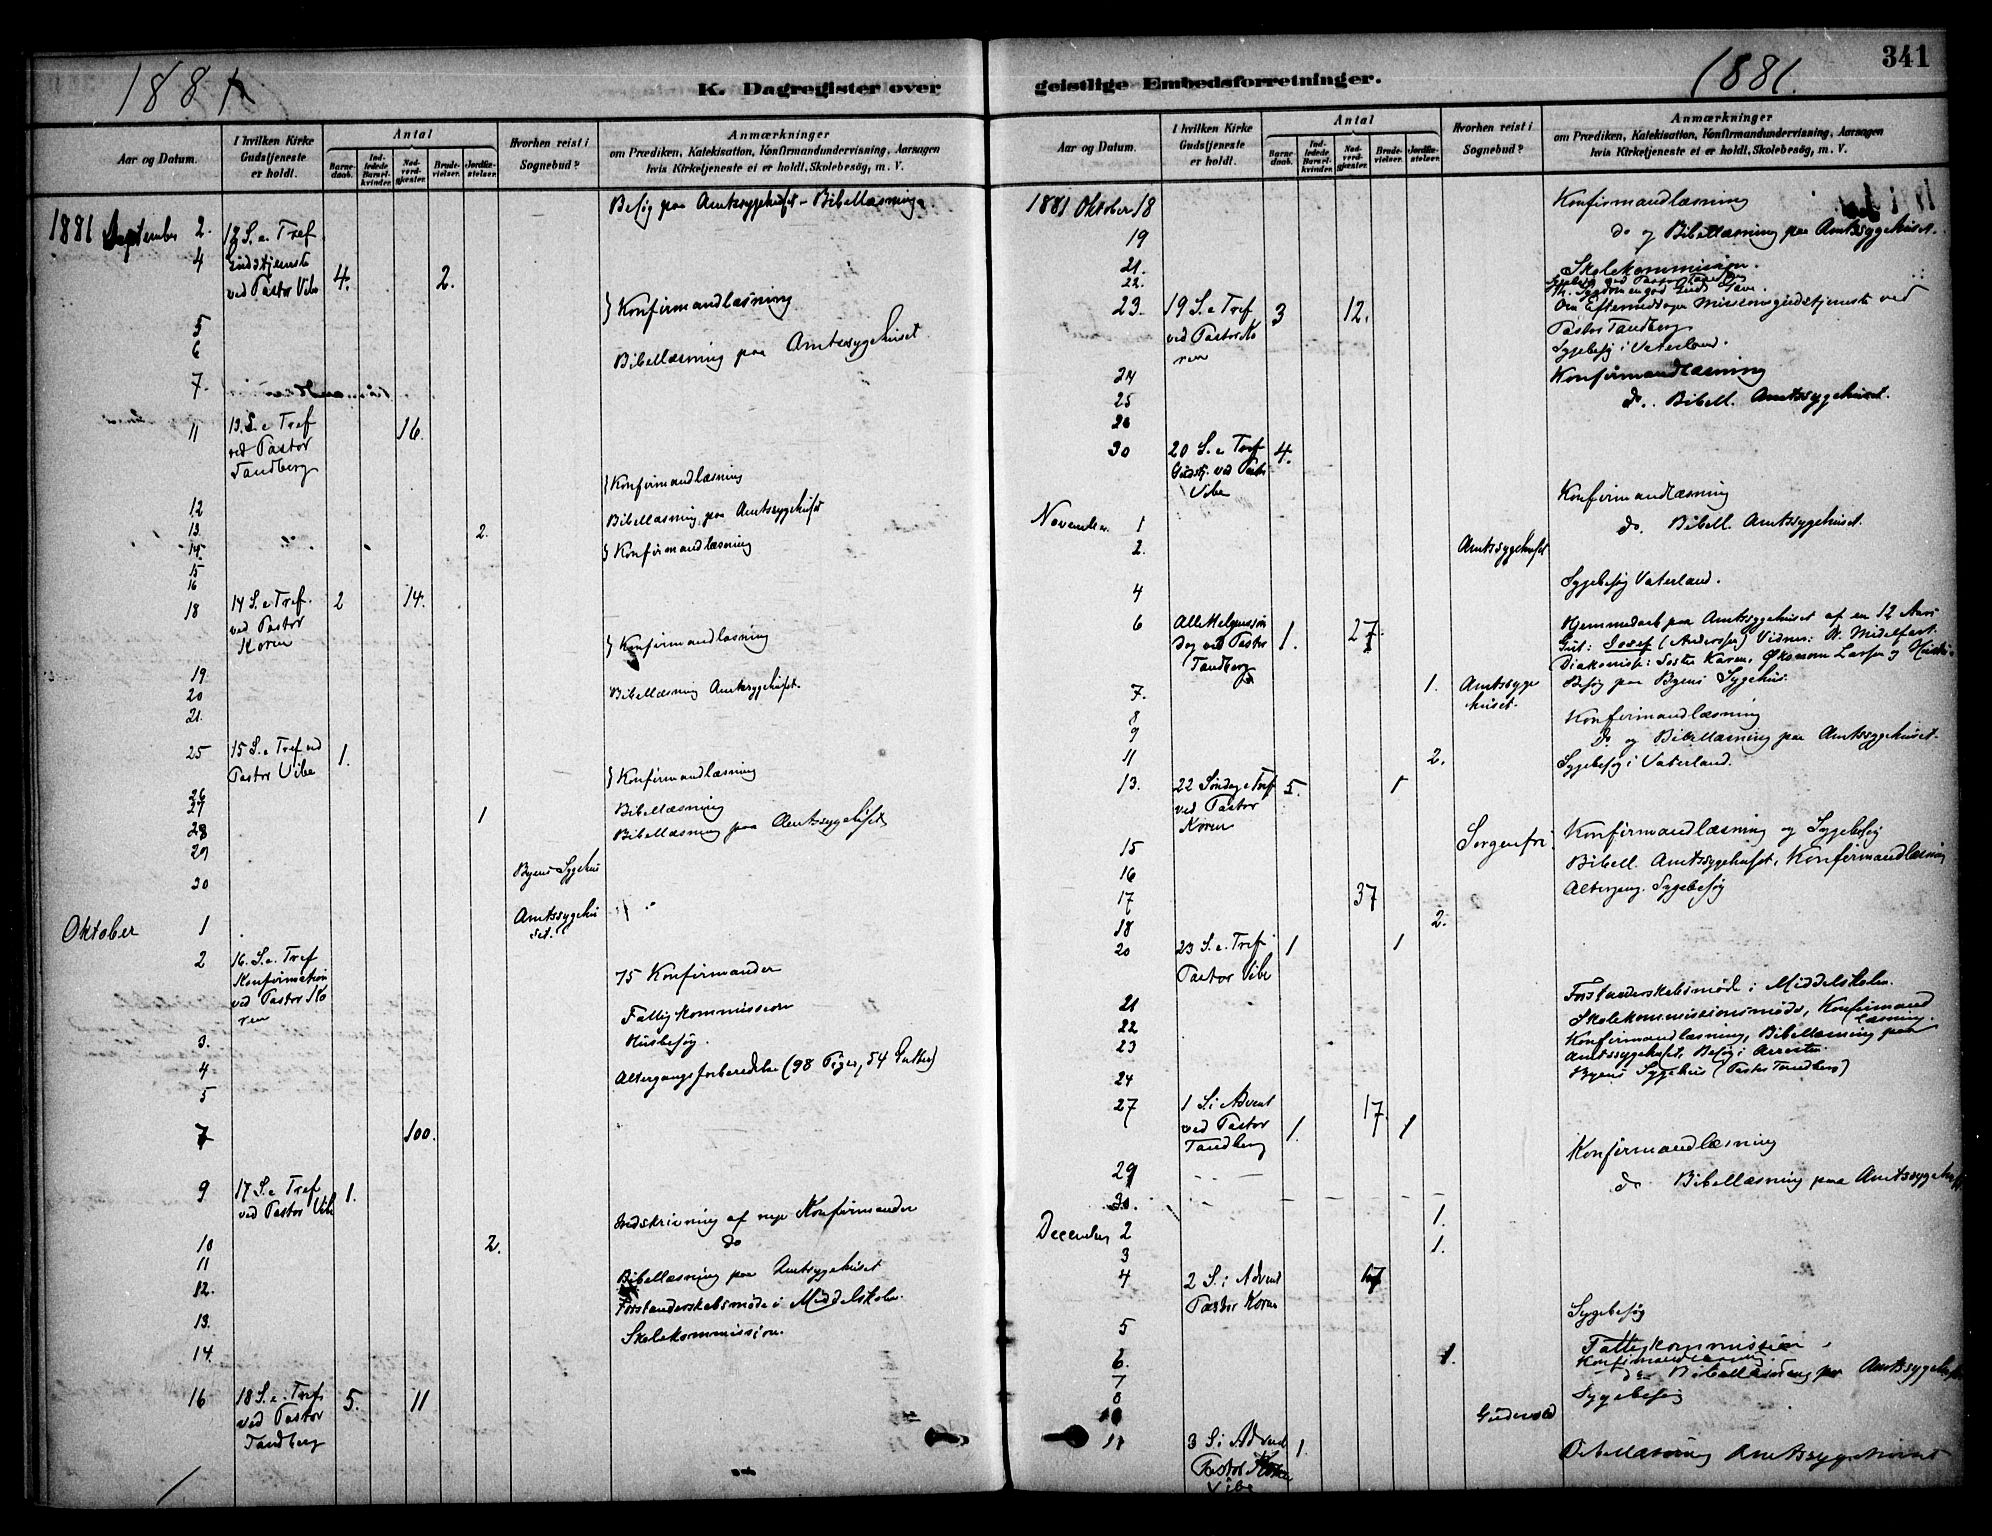 1881
K. Dagregister over
Aar og Datum.
I hvilken Kirke
Gudstjeneste
er holdt.
Antal
Barne-
daab.
Ind-
ledede
Barsel-
kvinder.
Nad-
verd-
gjæster.
Brude-
vielser.
Jordfæ-
stelser.
Hvorhen reist i
Sognebud?
Anmærkninger
om Prædiken, Katekisation, Konfirmandundervisning, Aarsagen
hvis Kirketjeneste ei er holdt, Skolebesøg, m. V.
1881 September 2. Besøg paa Amtssygehuset - Bibellæsning
4 12 S. e. Tref.
Gudstjeneste
ved Pastor Vibe 4. 2.
5 } Konfirmandlæsning
6
7. Bibellæsning paa Amtssygehuset.
11 13. S. e Tref 16.
ved Pastor
Tandberg
12 } Konfirmandlæsning
13. 2. Bibellæsning paa Amtssygehuset
14. } Konfirmandlæsning
15
16
18 14 S. e Tref. 2 14.
ved Pastor
Koren
19. } Konfirmandlæsning
20
21. Bibellæsning Amtssygehuset.
25 15 S. e Tref ved 1.
Pastor Vibe
26 } Konfirmandlæsning
27 1 Bibellæsning
28 Bibellæsning paa Amtssygehuset
29 Byens Sygehus
30
Oktober 1 Amtssygehu
set.
2 16. S. e. Tref 75 Konfirmander
Konfirmation
ved Pastor Ko
ren
3. Fattigkommission
4 Husbesøg.
5 Altergangsforberedelse (98 Piger, 54 Gutter)
7 100.
9 17 S. e Tref 1.
ved Pastor Vibe
10 2. Indskrivning af nye Konfirmander
11 do
12. Bibellæsning paa Amtssygehuset
13. Forstanderskabsmøde i Middelskolen.
14. Skolekommission.
16 18 S. e. Tref. 5. 11
ved Pastor
Tandberg
341
1881.
geistlige Embedsforretninger.
Aar og Datum.
I hvilken Kirke
Gudstjeneste
er holdt.
Antal
Barne-
daab.
Ind-
ledede
Barsel-
kvinder.
Nad-
verd-
gjæster.
Brude-
vielser.
Jordfæ-
stelser.
Hvorhen reist i
Sognebud?
Anmærkninger
om Prædiken, Katekisation, Konfirmandundervisning, Aarsagen
hvis Kirketjeneste ei er holdt, Skolebesøg, m. V.
1881 Oktober 18 Konfirmandlæsning
19 do og Bibellæsning paa Amtssygehuset.
21. Skolekommission.
22.
23. 19 S. e Tref 3 12. Om Eftermiddagen Missionsgudstjeneste ved
ved Pastor Ko
ren
Pastor Tandberg
Sygebesøg i Vaterland.
24 Konfirmandlæsning
25 do. Bibell. Amtssygehuset.
26
30 20 S. e Tref 4.
Gudstj. ved Pastor
Vibe
November 1 Konfirmandlæsning
2. do. Bibell. Amtssygehuset.
Amtssygehuset
4 Sygebesøg Vaterland.
6 Allehelgenssøn 1. 27.
dag ved Pastor
Tandberg
Hjemmedaab paa Amtssygehuset af en 12 Aars
Gut: Josef (Anderssen) Vidner: N. Midelfart
Diakonisse: Søster Karen, Økonom Larsen og
7. 1. Amtssyge
huset. Besøg paa Byens Sygehus.
8 Konfirmandlæsning
9 do og Bibellæsning paa Amtssygehuset.
11 2. Sygebesøg i Vaterland.
13. 22 Søndag e Tref 5. 1
ved Pastor
Koren
15 Sorgenfri. Konfirmandlæsning og Sygebesøg
16 Bibell. Amtssygehuset, Konfirmandlæsning
17 37 Altergang. Sygebesøg
18 2.
20 23 S. e. Tref. 1 1
Pastor Vibe
21 Forstanderskabsmøde i Middelskolen.
22 Skolekommissionsmøde, Konfirmand
læsning.
23 Konfirmandlæsning, Bibellæsning paa
Amtssygehuset, Besøg i Arresten
24 Byens Sygehus (Pastor Tandberg)
27 1 S. i Advent 17.
ved Pastor 1. 1
Tandberg
29 Konfirmandlæsning
30. do Bibellæsning paa Amtssygehuset
December 2 1.
3 1.
4 2 S. i Advent 17
Pastor Koren
5 Sygebesøg
6. 1. Fattigkommission
7 Konfirmandlæsning.
do Bibellæsning paa Amtssygehuset
8 Sygebesøg
10
11 3 S. i Advent 1.
Pastor
Vibe
Bibellæsning Amtssygehuset